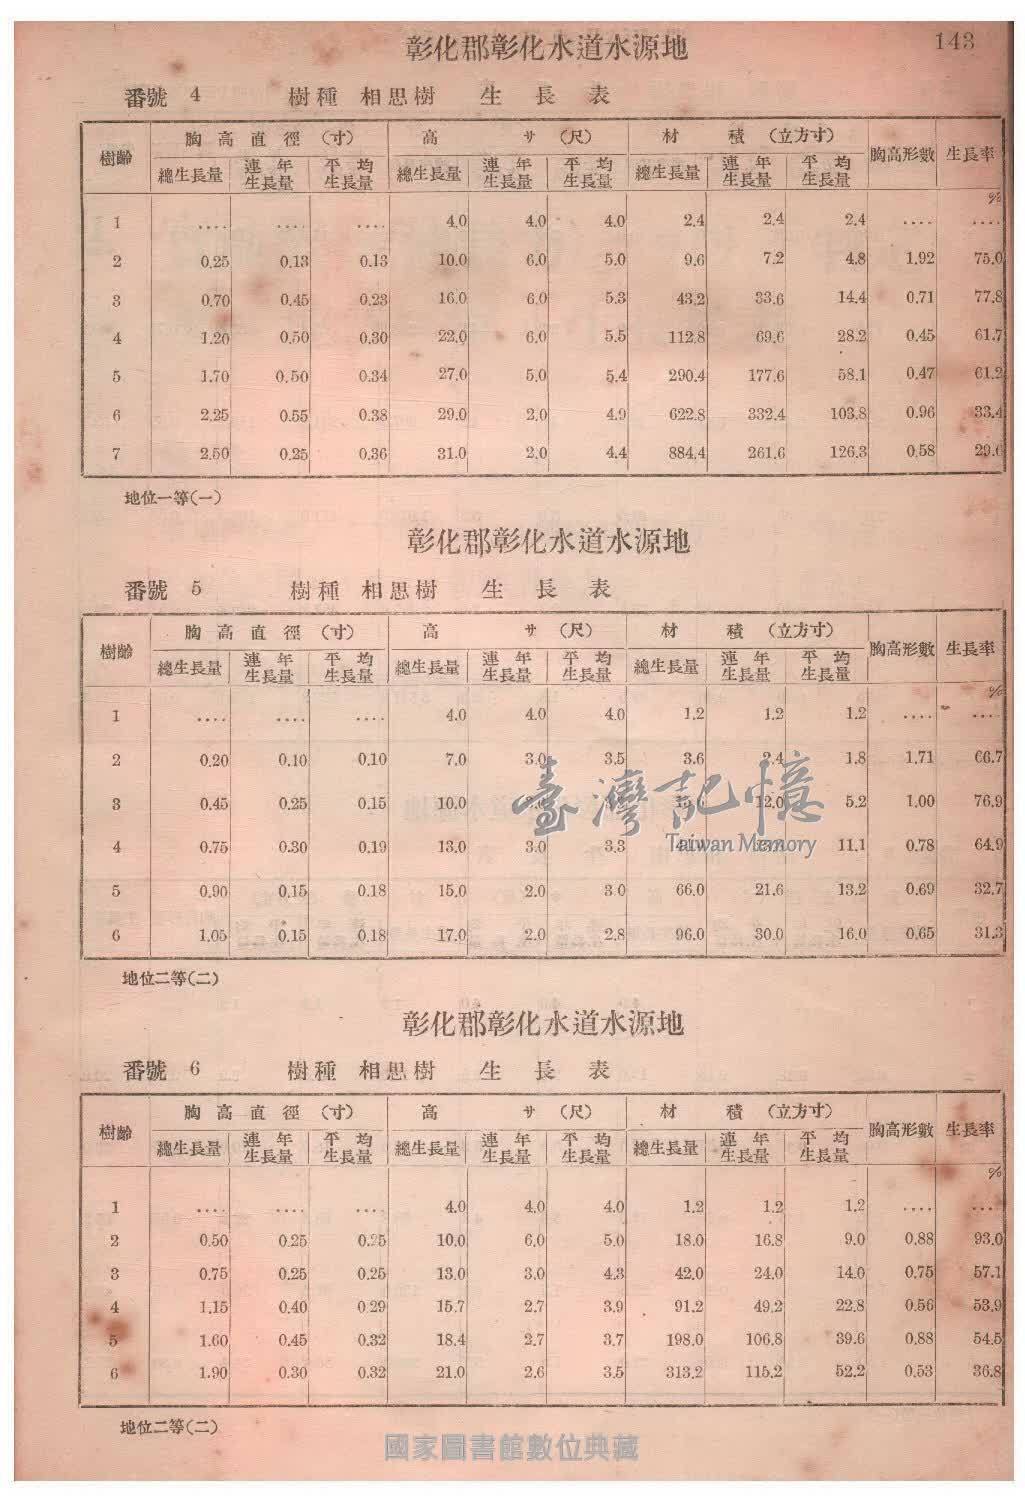 彰化郡彰化水道水源地 143
番號 4 樹種 相思樹 生長表
樹齡 胸高直徑(寸) 高サ(尺) 材積(立方寸) 胸高形數 生長率
總生長量 連年生長量 平均生長量 總生長量 連年生長量 平均生長量 總生長量 連年生長量 平均生長量
%
1 .... .... .... 4.0 4.0 4.0 2.4 2.4 2.4 .... ....
2 0.25 0.13 0.13 10.0 6.0 5.0 9.6 7.2 4.8 1.92 75.0
3 0.70 0.45 0.23 16.0 6.0 5.3 43.2 33.6 14.4 0.71 77.8
4 1.20 0.50 0.30 22.0 6.0 5.5 112.8 69.6 28.2 0.45 61.7
5 1.70 0.50 0.34 27.0 5.0 5.4 290.4 177.6 58.1 0.47 61.2
6 2.25 0.55 0.38 29.0 2.0 4.9 622.8 332.4 103.8 0.96 33.4
7 2.50 0.25 0.36 31.0 2.0 4.4 884.4 261.6 126.3 0.58 29.6
地位一等(一)
彰化郡彰化水道水源地
番號 5 樹種 相思樹 生長表
樹齡 胸高直徑(寸) 高サ(尺) 材積(立方寸) 胸高形數 生長率
總生長量 連年生長量 平均生長量 總生長量 連年生長量 平均生長量 總生長量 連年生長量 平均生長量
%
1 .... .... .... 4.0 4.0 4.0 1.2 1.2 1.2 .... ....
2 0.20 0.10 0.10 7.0 3.0 3.5 3.6 2.4 1.8 1.71 66.7
臺灣記憶
3 0.45 0.25 0.15 10.0 12.0 5.2 1.00 76.9
Taiwan Memory
4 0.75 0.30 0.19 13.0 3.0 3.3 11.1 0.78 64.9
5 0.90 0.15 0.18 15.0 2.0 3.0 66.0 21.6 13.2 0.69 32.7
6 1.05 0.15 0.18 17.0 2.0 2.8 96.0 30.0 16.0 0.65 31.3
地位二等(二)
彰化郡彰化水道水源地
番號 6 樹種 相思樹 生長表
樹齡 胸高直徑(寸) 高サ(尺) 材積(立方寸) 胸高形數 生長率
總生長量 連年生長量 平均生長量 總生長量 連年生長量 平均生長量 總生長量 連年生長量 平均生長量
%
1 .... .... .... 4.0 4.0 4.0 1.2 1.2 1.2 .... ....
2 0.50 0.25 0.25 10.0 6.0 5.0 18.0 16.8 9.0 0.88 93.0
3 0.75 0.25 0.25 13.0 3.0 4.3 42.0 24.0 14.0 0.75 57.1
4 1.15 0.40 0.29 15.7 2.7 3.9 91.2 49.2 22.8 0.56 53.9
5 1.60 0.45 0.32 18.4 2.7 3.7 198.0 106.8 39.6 0.88 54.5
6 1.90 0.30 0.32 21.0 2.6 3.5 313.2 115.2 52.2 0.53 36.8
地位二等(二)
國家圖書館數位典藏